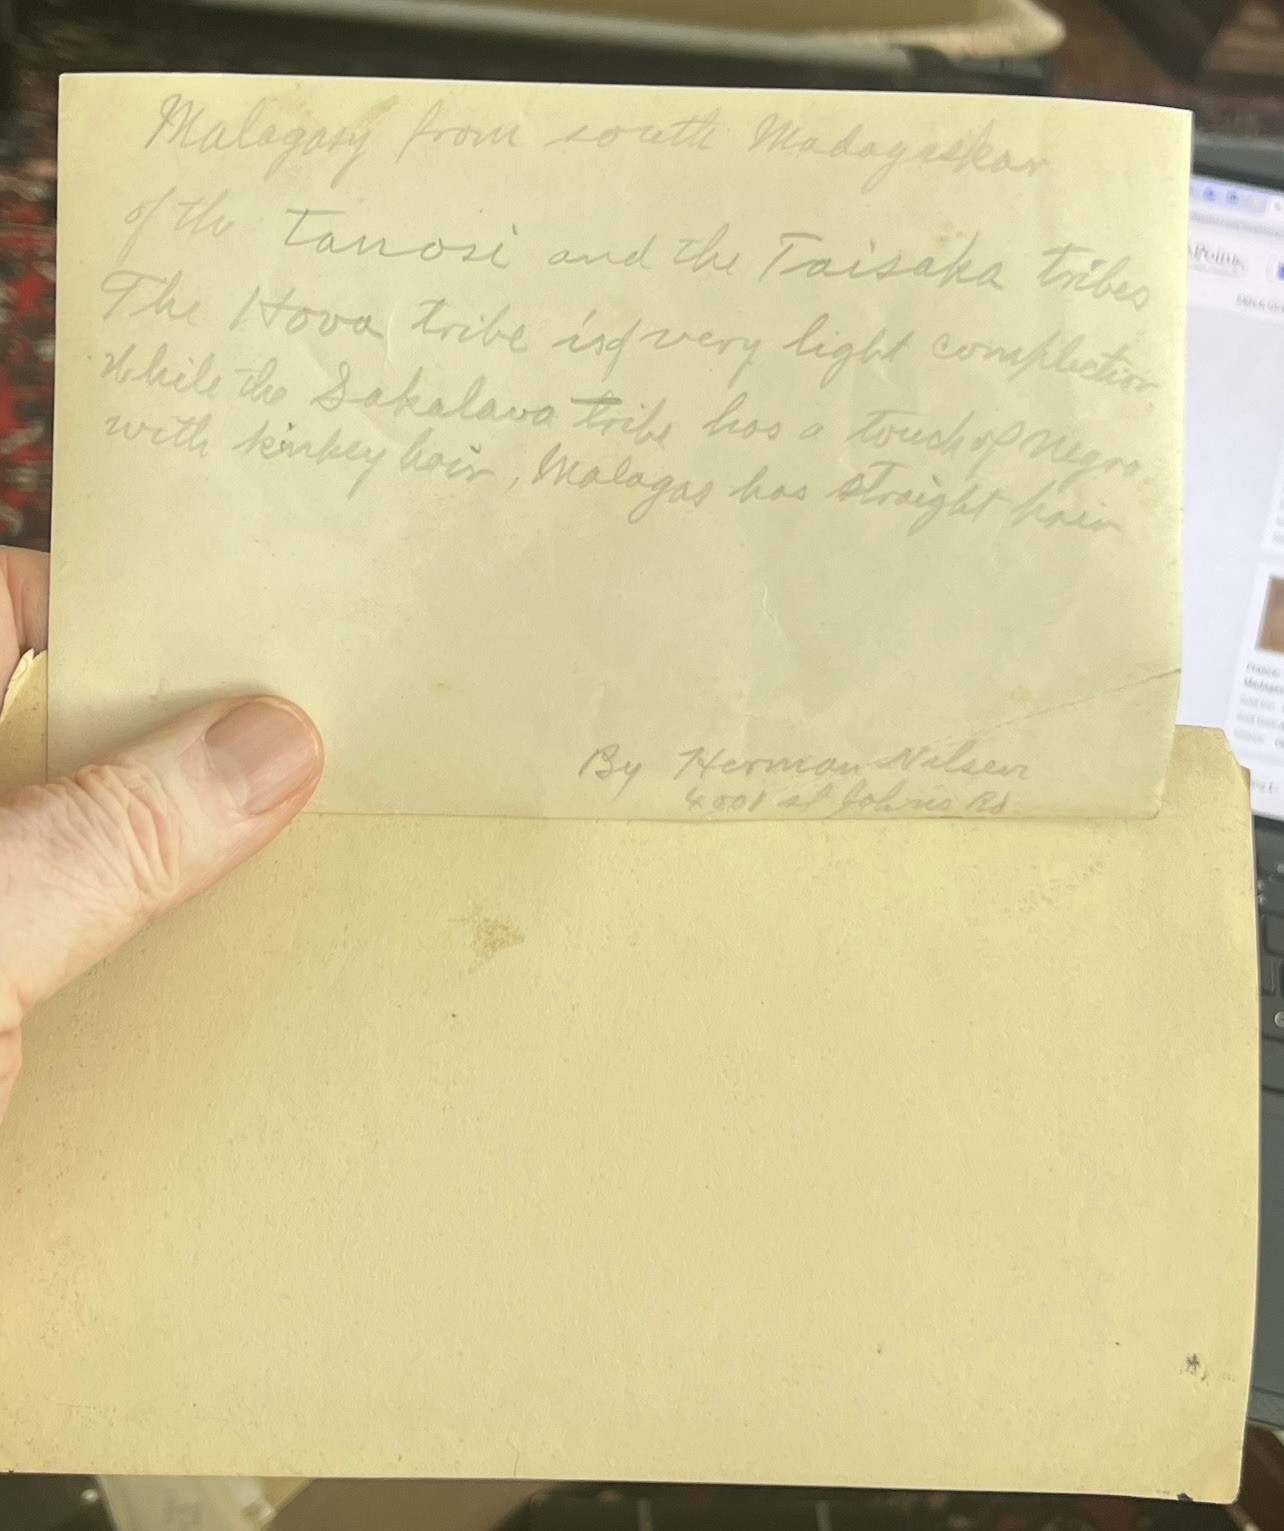 Malagasy from south Madagaskar
of the Tanosi and the Taisaka tribes
The Hova tribe is of very light complection
while the Sakalava tribe has a touch of Negro
with kinkey hair, Malagas has straight hair
By Herman Nilsen
4001 st Johns Rd